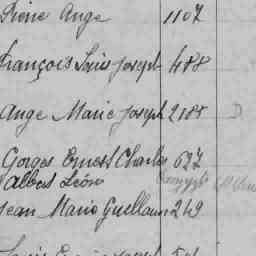 Pierre Ange 1107
François Louis Joseph 488
Ange Marie Joseph 2188 D
Gorges Ernest Charles 627
Albert Léon
Jean Marie Guillaum 249